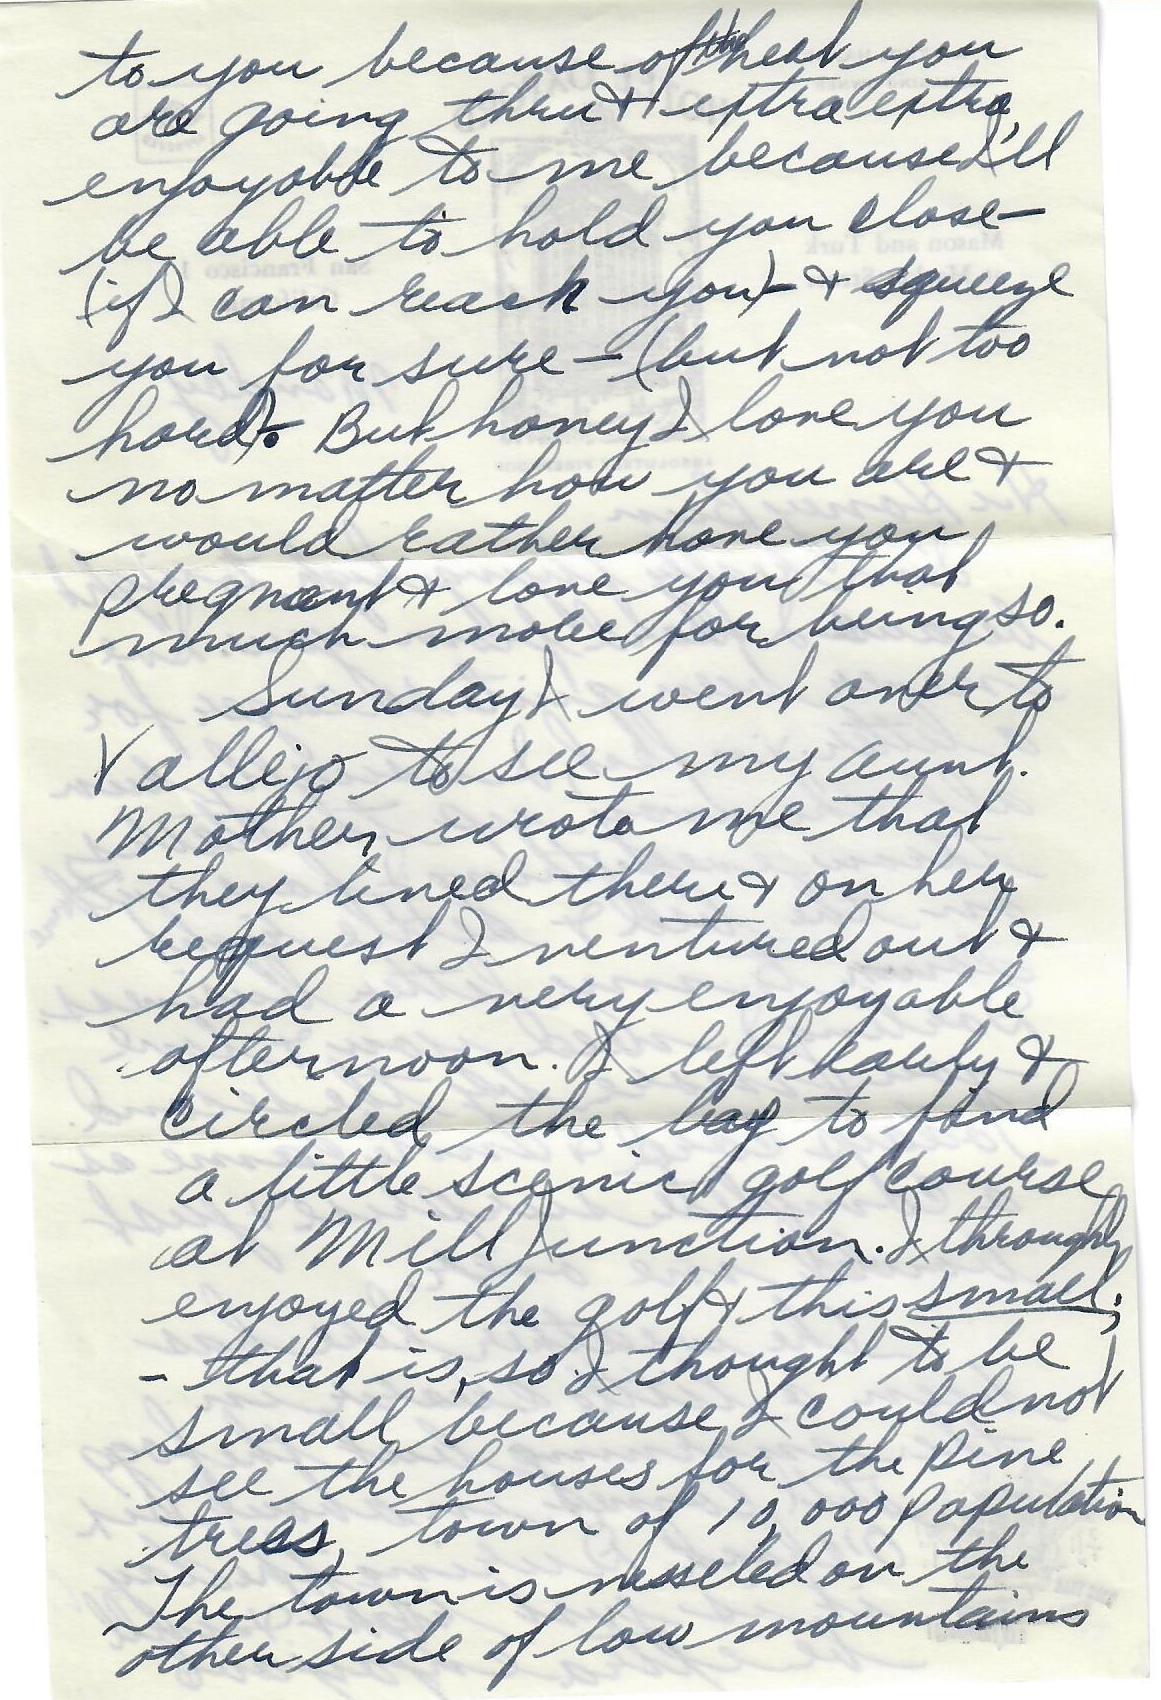 to you because of the heat you
are going thru & extra extra
enjoyable to me because I'll
be able to hold you close –
(if I can reach you) – & squeeze
you for sure – (but not too
hard). But honey I love you
no matter how you are &
would rather have you
pregnant & love you that
much more for being so.
Sunday I went over to
Vallejo to see my aunt.
Mother wrote me that
they lived there & on her
request I ventured out &
had a very enjoyable
afternoon. I left early &
circled the bay to find
a little scenic golf course
at Mill Junction. I throughly
enjoyed the golf & this small;
– that is, so I thought to be
small because I could not
see the houses for the pine
tress, town of 10,000 population
The town is nesseled on the
other side of low mountains
Mason and Turk
San Francisco